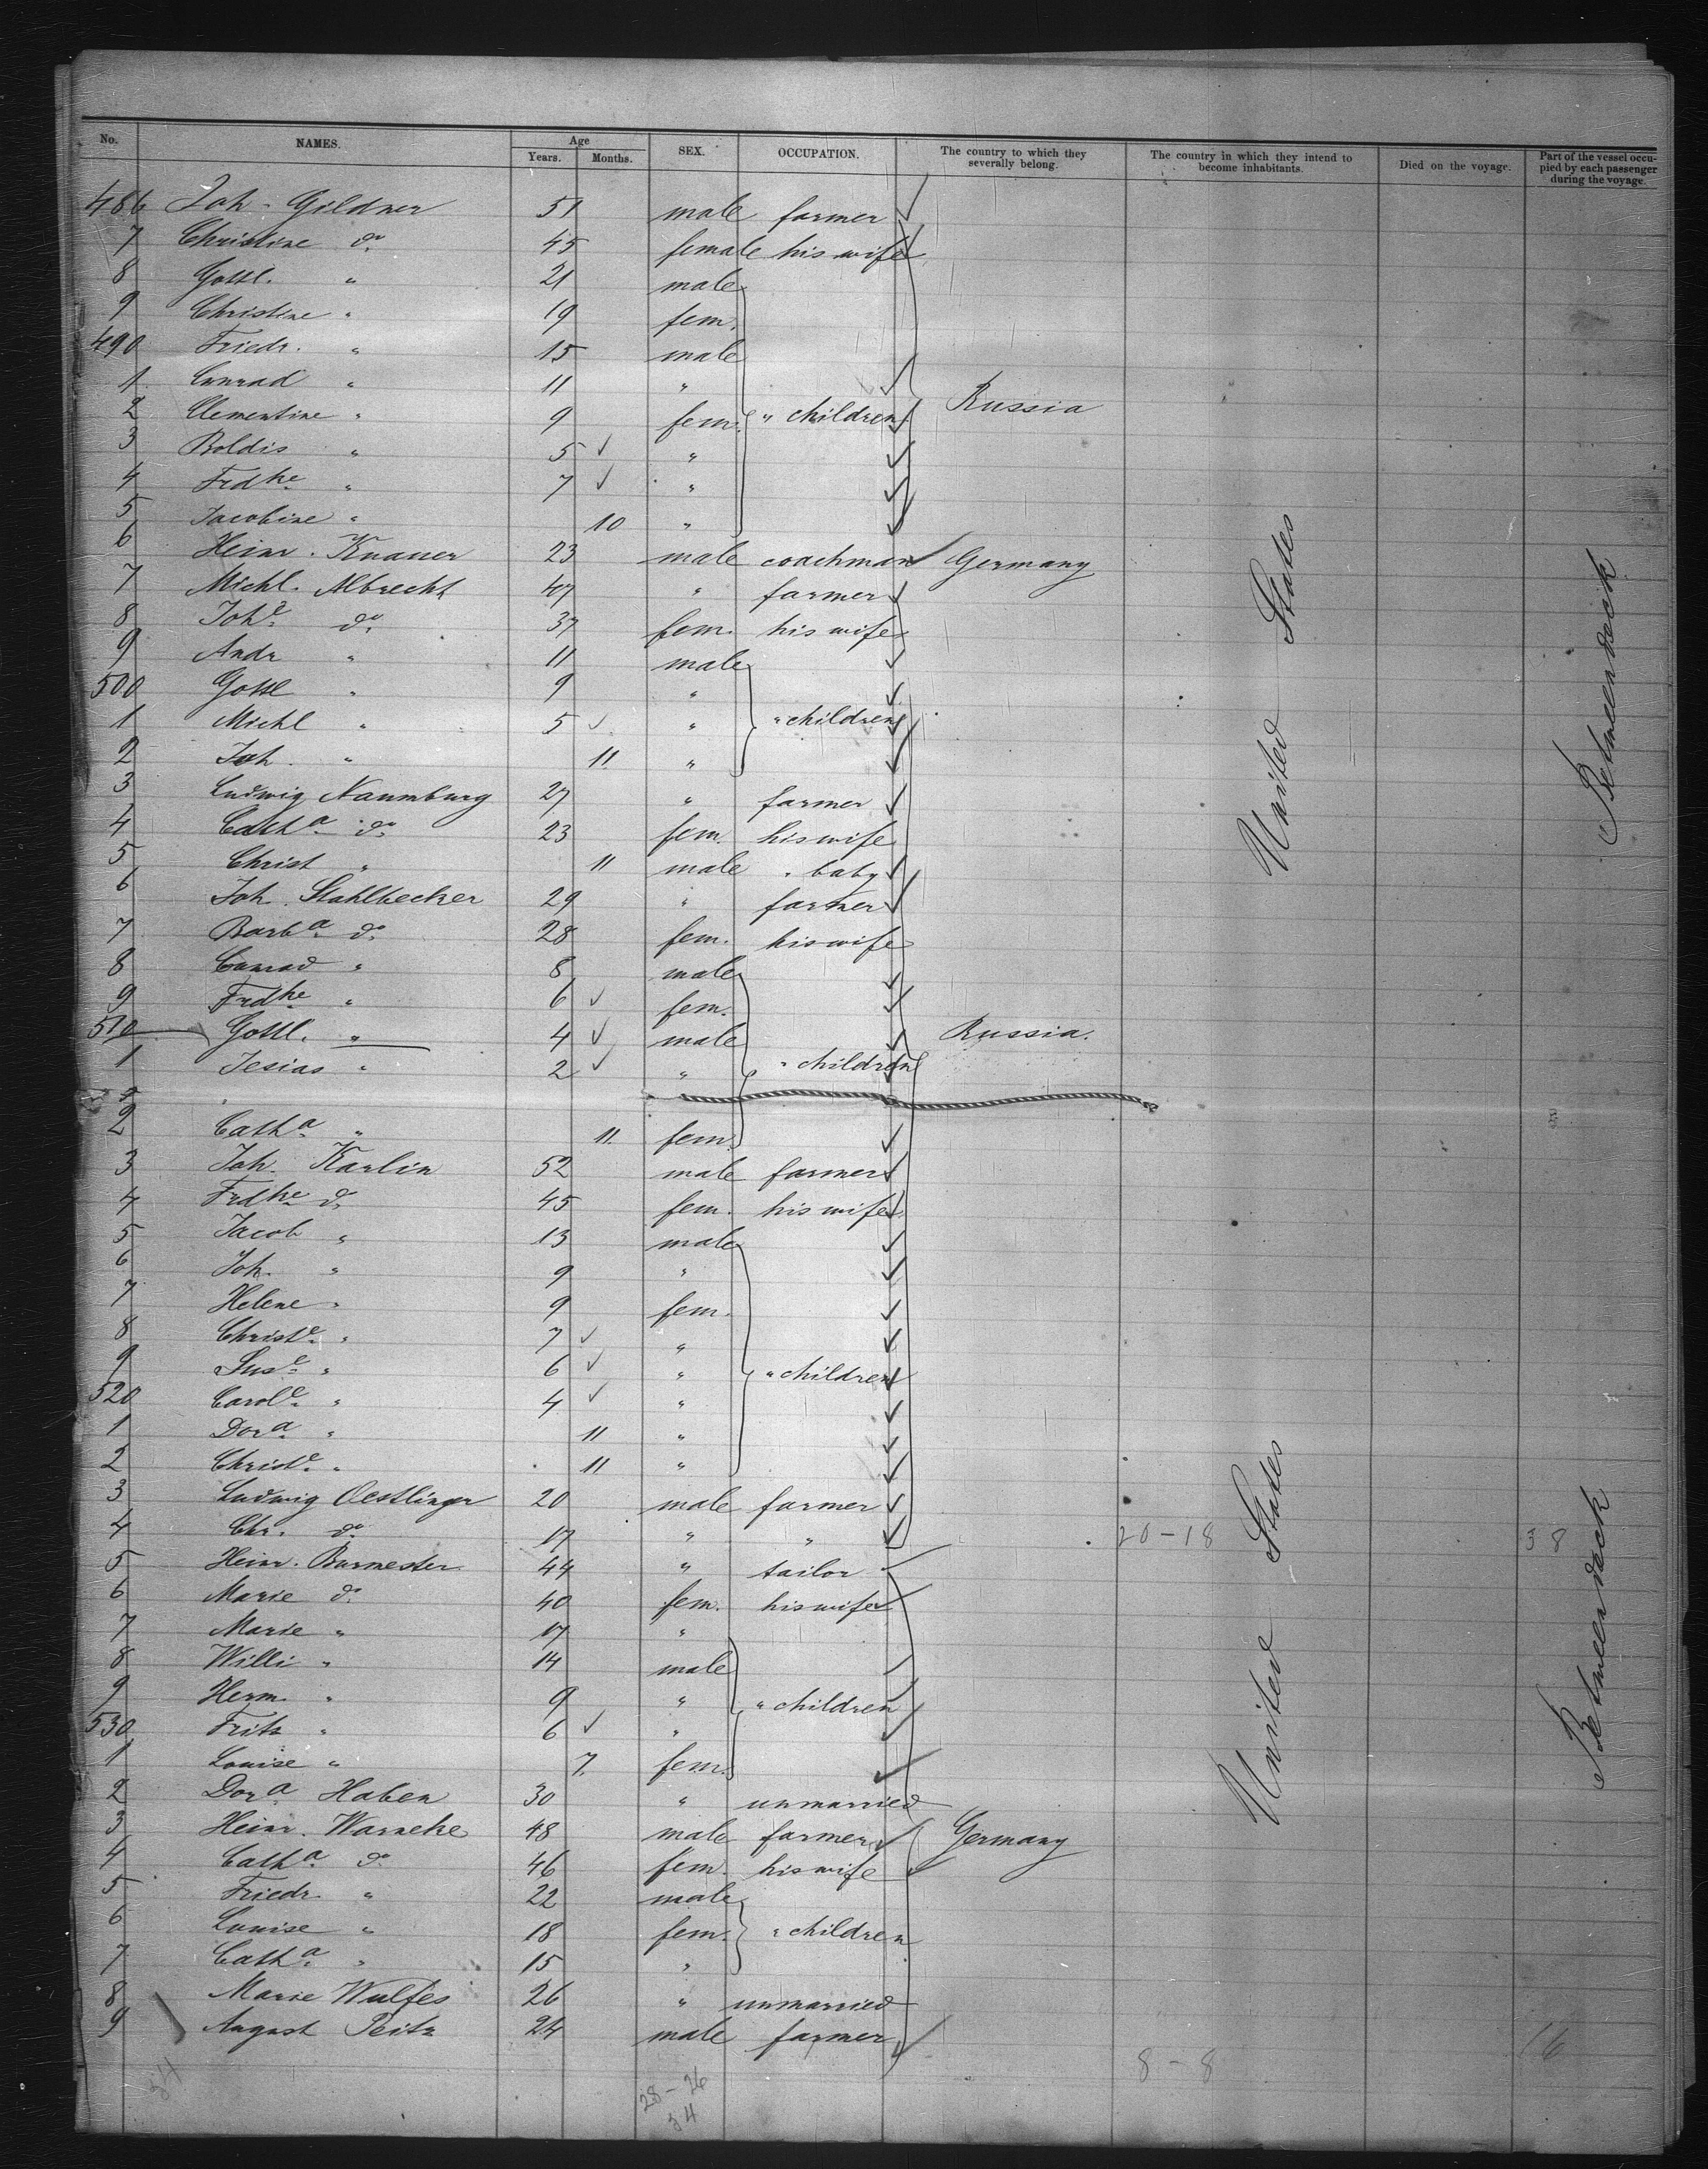 No. NAMES. Age Years. Months. SEX. OCCUPATION. The country to which they severally belong. The country in which they intend to become inhabitants. Died on the voyage. Part of the vessel occupied by each passenger during the voyage.
486 Joh. Gildner 51 male farmer
7 Christine do 45 female his wife
8 Gottl. " 21 male
9 Christine " 19 fem.
490 Friedr. " 15 male
1 Conrad " 11 "
2 Clementine " 9 fem. " children Russia
3 Boldis " 5 "
4 Frdke " 7 "
5 Jacobine " 10 "
6 Heinr. Knauer 23 male coachman Germany
7 Michl. Albrecht 47 " farmer
8 Johe do 37 fem. his wife
9 Andr " 11 male
500 Gottl " 9 "
1 Michl " 5 " " children
2 Joh. " 11 "
3 Ludwig Naumburg 27 " farmer
4 Catha do 23 fem. his wife
5 Christ " 11 male " baby
6 Joh. Stahlbecker 29 " farmer
7 Barba do 28 fem. his wife
8 Conrad " 8 male
9 Frdke " 6 fem.
510 Gottl. " 4 male Russia.
1 Jesias " 2 " " children
2 Catha " 11 fem.
3 Joh. Karlin 52 male farmer
4 Frdke do 45 fem. his wife
5 Jacob " 13 male
6 Joh. " 9 "
7 Helene " 9 fem.
8 Christe " 7 "
9 Suse " 6 " " children
520 Carole " 4 "
1 Dora " 11 "
2 Christe " 11 "
3 Ludwig Oestlinger 20 male farmer
4 Chr. do 17 " " 20-18 38
5 Heinr. Burmester 44 " tailor
6 Marie do 40 fem. his wife
7 Marie " 17 "
8 Willi " 14 male
9 Herm. " 9 " " children
530 Fritz " 6 "
1 Louise " 7 fem.
2 Dora Haben 30 " unmarried
3 Heinr. Warneke 48 male farmer Germany
4 Catha do 46 fem his wife
5 Friedr. " 22 male
6 Louise " 18 fem. " children
7 Catha " 15 "
8 Marie Wulfes 26 " unmarried
9 August Peitz 24 male farmer
8-8 16
34 28-26
34
United States
Betweendeck
United States
Betweendeck